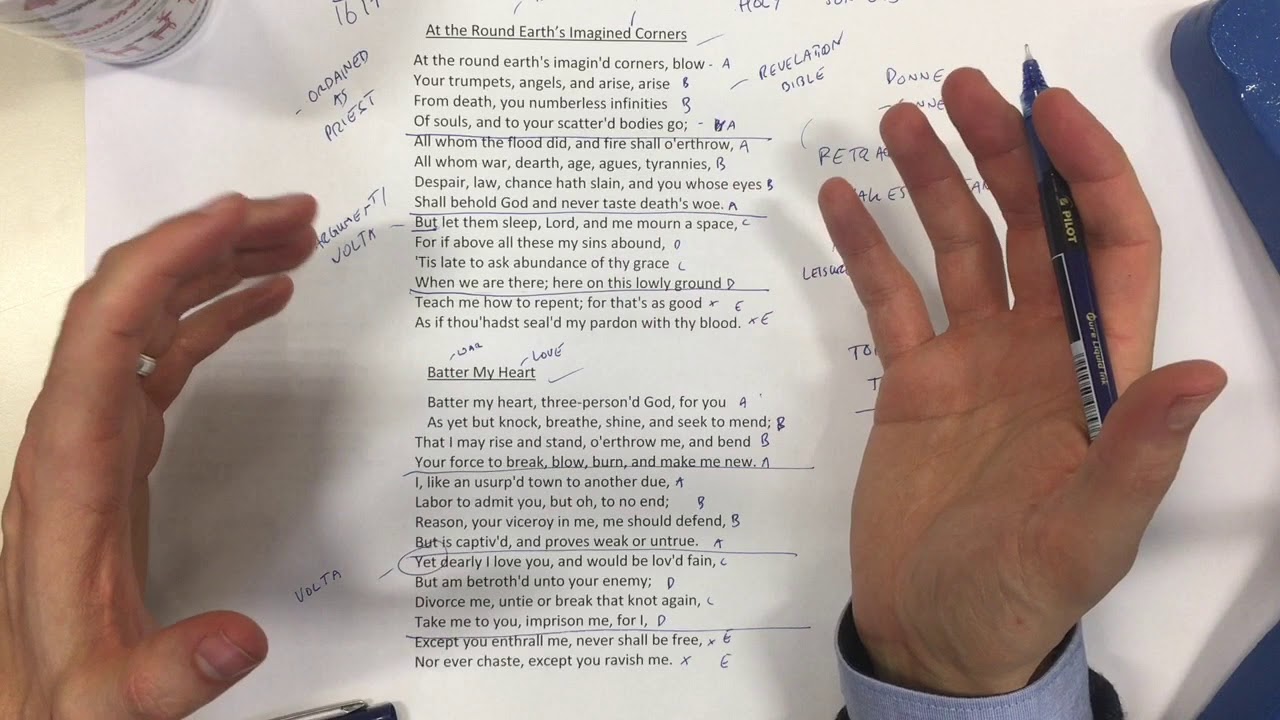 1617
HOLY
At the Round Earth's Imagined Corners
At the round earth's imagin'd corners, blow - A
Your trumpets, angels, and arise, arise B
From death, you numberless infinities B
Of souls, and to your scatter'd bodies go; - A
All whom the flood did, and fire shall o'erthrow, A
All whom war, dearth, age, agues, tyrannies, B
Despair, law, chance hath slain, and you whose eyes B
Shall behold God and never taste death's woe. A
But let them sleep, Lord, and me mourn a space, C
For if above all these my sins abound, D
'Tis late to ask abundance of thy grace C
When we are there; here on this lowly ground D
Teach me how to repent; for that's as good x E
As if thou'hadst seal'd my pardon with thy blood. x E
- ORDAINED
AS
PRIEST
- REVELATION
BIBLE
DONNE
VOLTA -
WAR
LOVE
Batter My Heart
Batter my heart, three-person'd God, for you A
As yet but knock, breathe, shine, and seek to mend; B
That I may rise and stand, o'erthrow me, and bend B
Your force to break, blow, burn, and make me new. A
I, like an usurp'd town to another due, A
Labor to admit you, but oh, to no end; B
Reason, your viceroy in me, me should defend, B
But is captiv'd, and proves weak or untrue. A
Yet dearly I love you, and would be lov'd fain, C
But am betroth'd unto your enemy; D
Divorce me, untie or break that knot again, C
Take me to you, imprison me, for I, D
Except you enthrall me, never shall be free, x E
Nor ever chaste, except you ravish me. x E
VOLTA
PILOT
Pure Liquid Ink